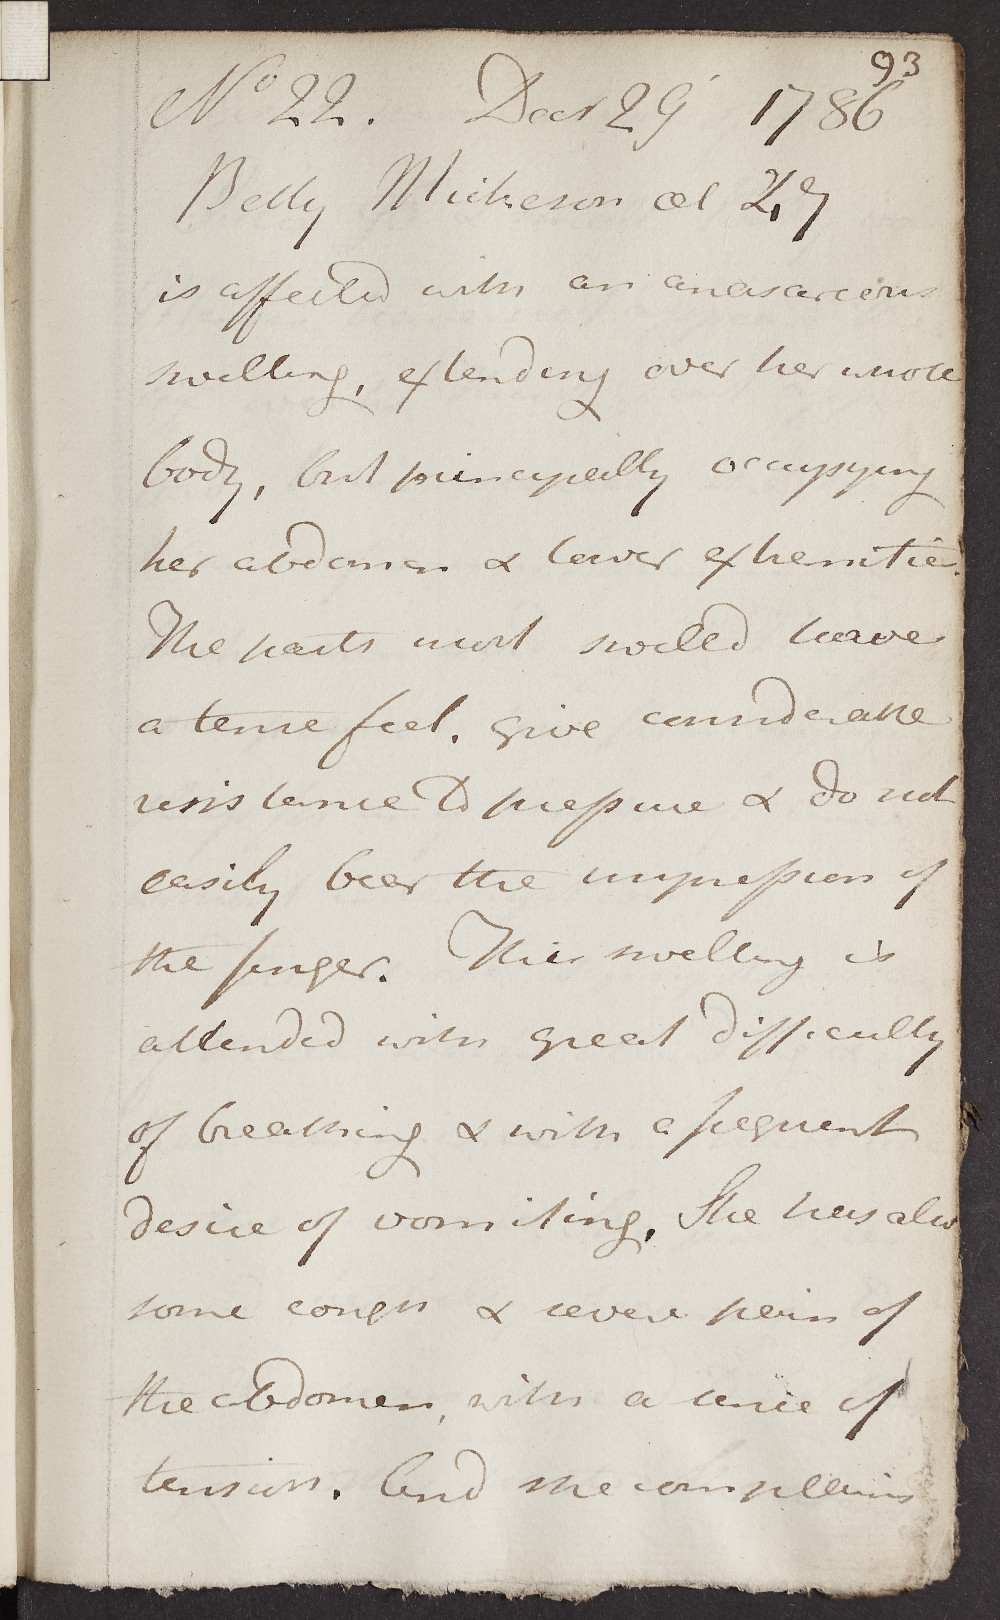 93
No 22. Decr 29 1786
Betty Micheson æt 27
is affected with an anasarcous
swelling, extending over her whole
body, but principally occupying
her abdomen & lower extremitie.
The parts most swelled have
a tense feel, give considerable
resistance to pressure & do not
easily bear the impression of
the finger. This swelling is
attended with great difficulty
of breathing & with a frequent
desire of vomiting. She has also
some cough & severe pain of
the abdomen, with a sense of
tension. And she complains